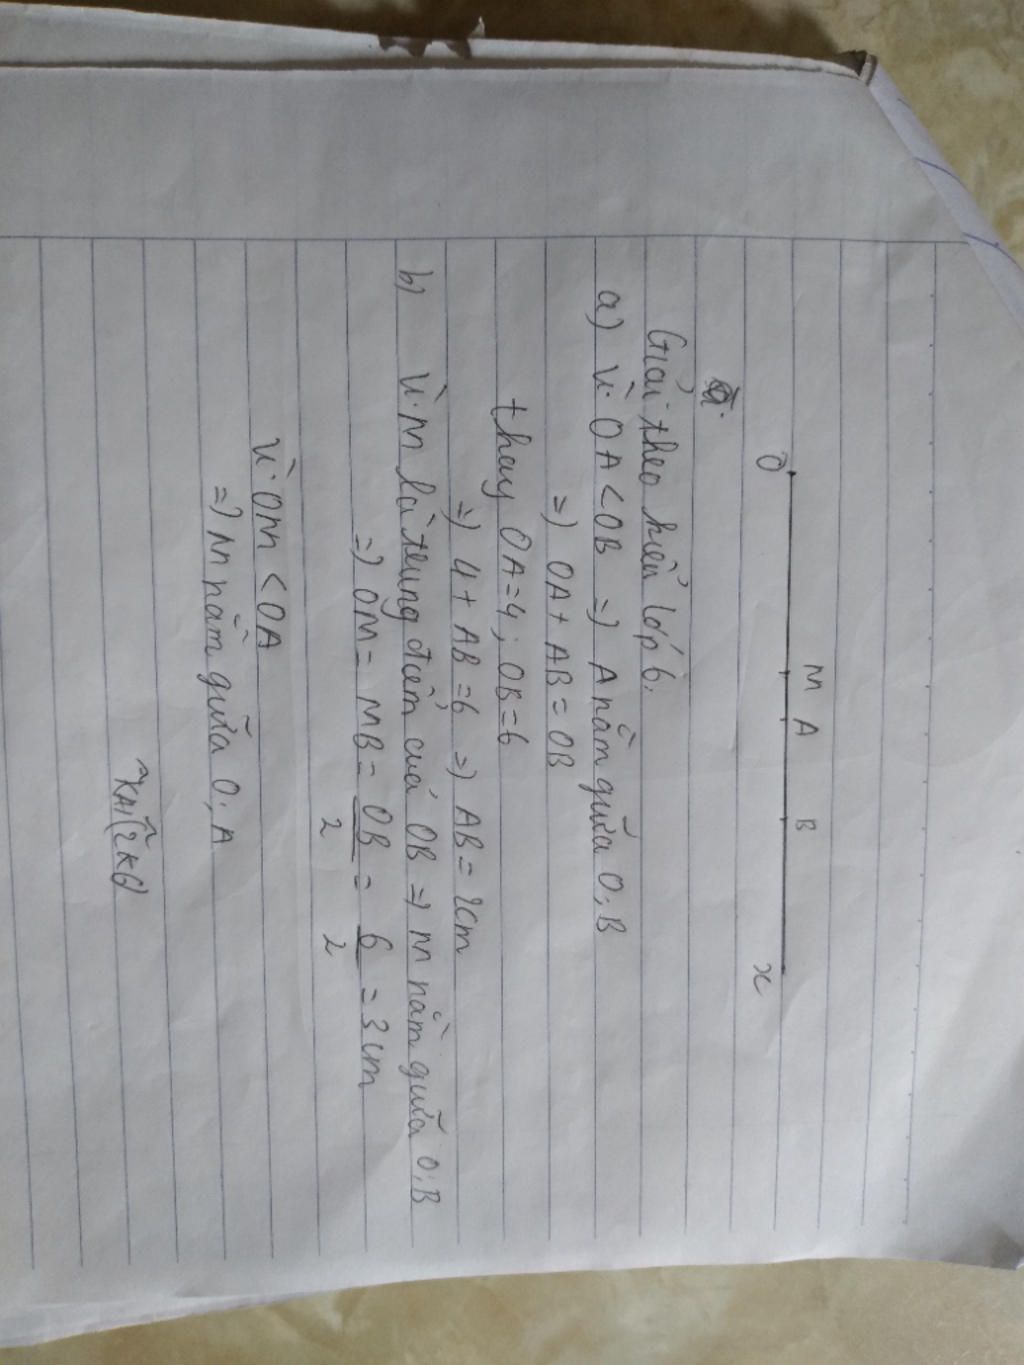 O M A B x
Giải theo kiểu lớp 6.
a) Vì OA < OB => A nằm giữa O; B
=> OA + AB = OB
thay OA = 4; OB = 6
=> 4 + AB = 6 => AB = 2cm
b) Vì M là trung điểm cuả OB => M nằm giữa O; B
=> OM = MB = OB/2 = 6/2 = 3cm
Vì OM < OA
=> M nằm giữa O; A